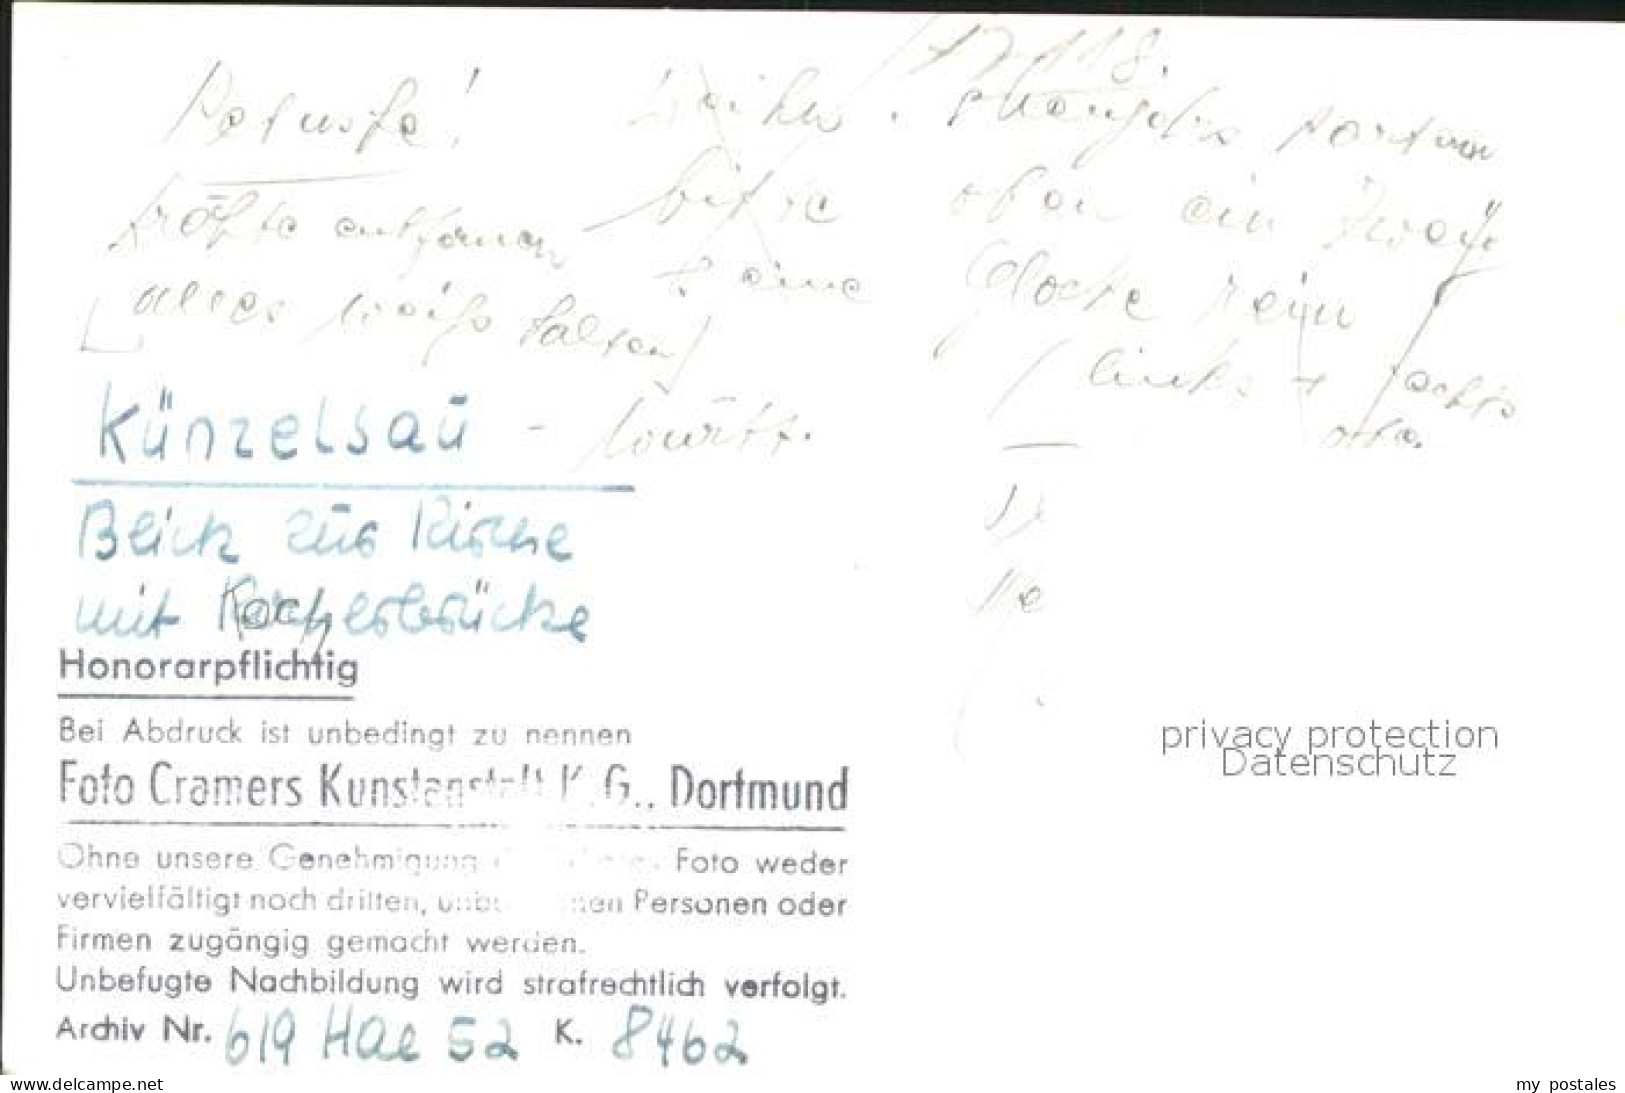 Retusche!
Drähte entfernen
alles weiß halten
bitte
keine
oben ein Zweig
Glocke rein
links + rechts
Künzelsau - Württ.
Blick zur Kirche
mit Kocherbrücke
Honorarpflichtig
Bei Abdruck ist unbedingt zu nennen
Foto Cramers Kunstanstalt K.G., Dortmund
Ohne unsere Genehmigung Foto weder
vervielfältigt noch dritten, Personen oder
Firmen zugängig gemacht werden.
Unbefugte Nachbildung wird strafrechtlich verfolgt.
Archiv Nr. 619 Hae 52 K. 8462
privacy protection
Datenschutz
www.delcampe.net
my_postales